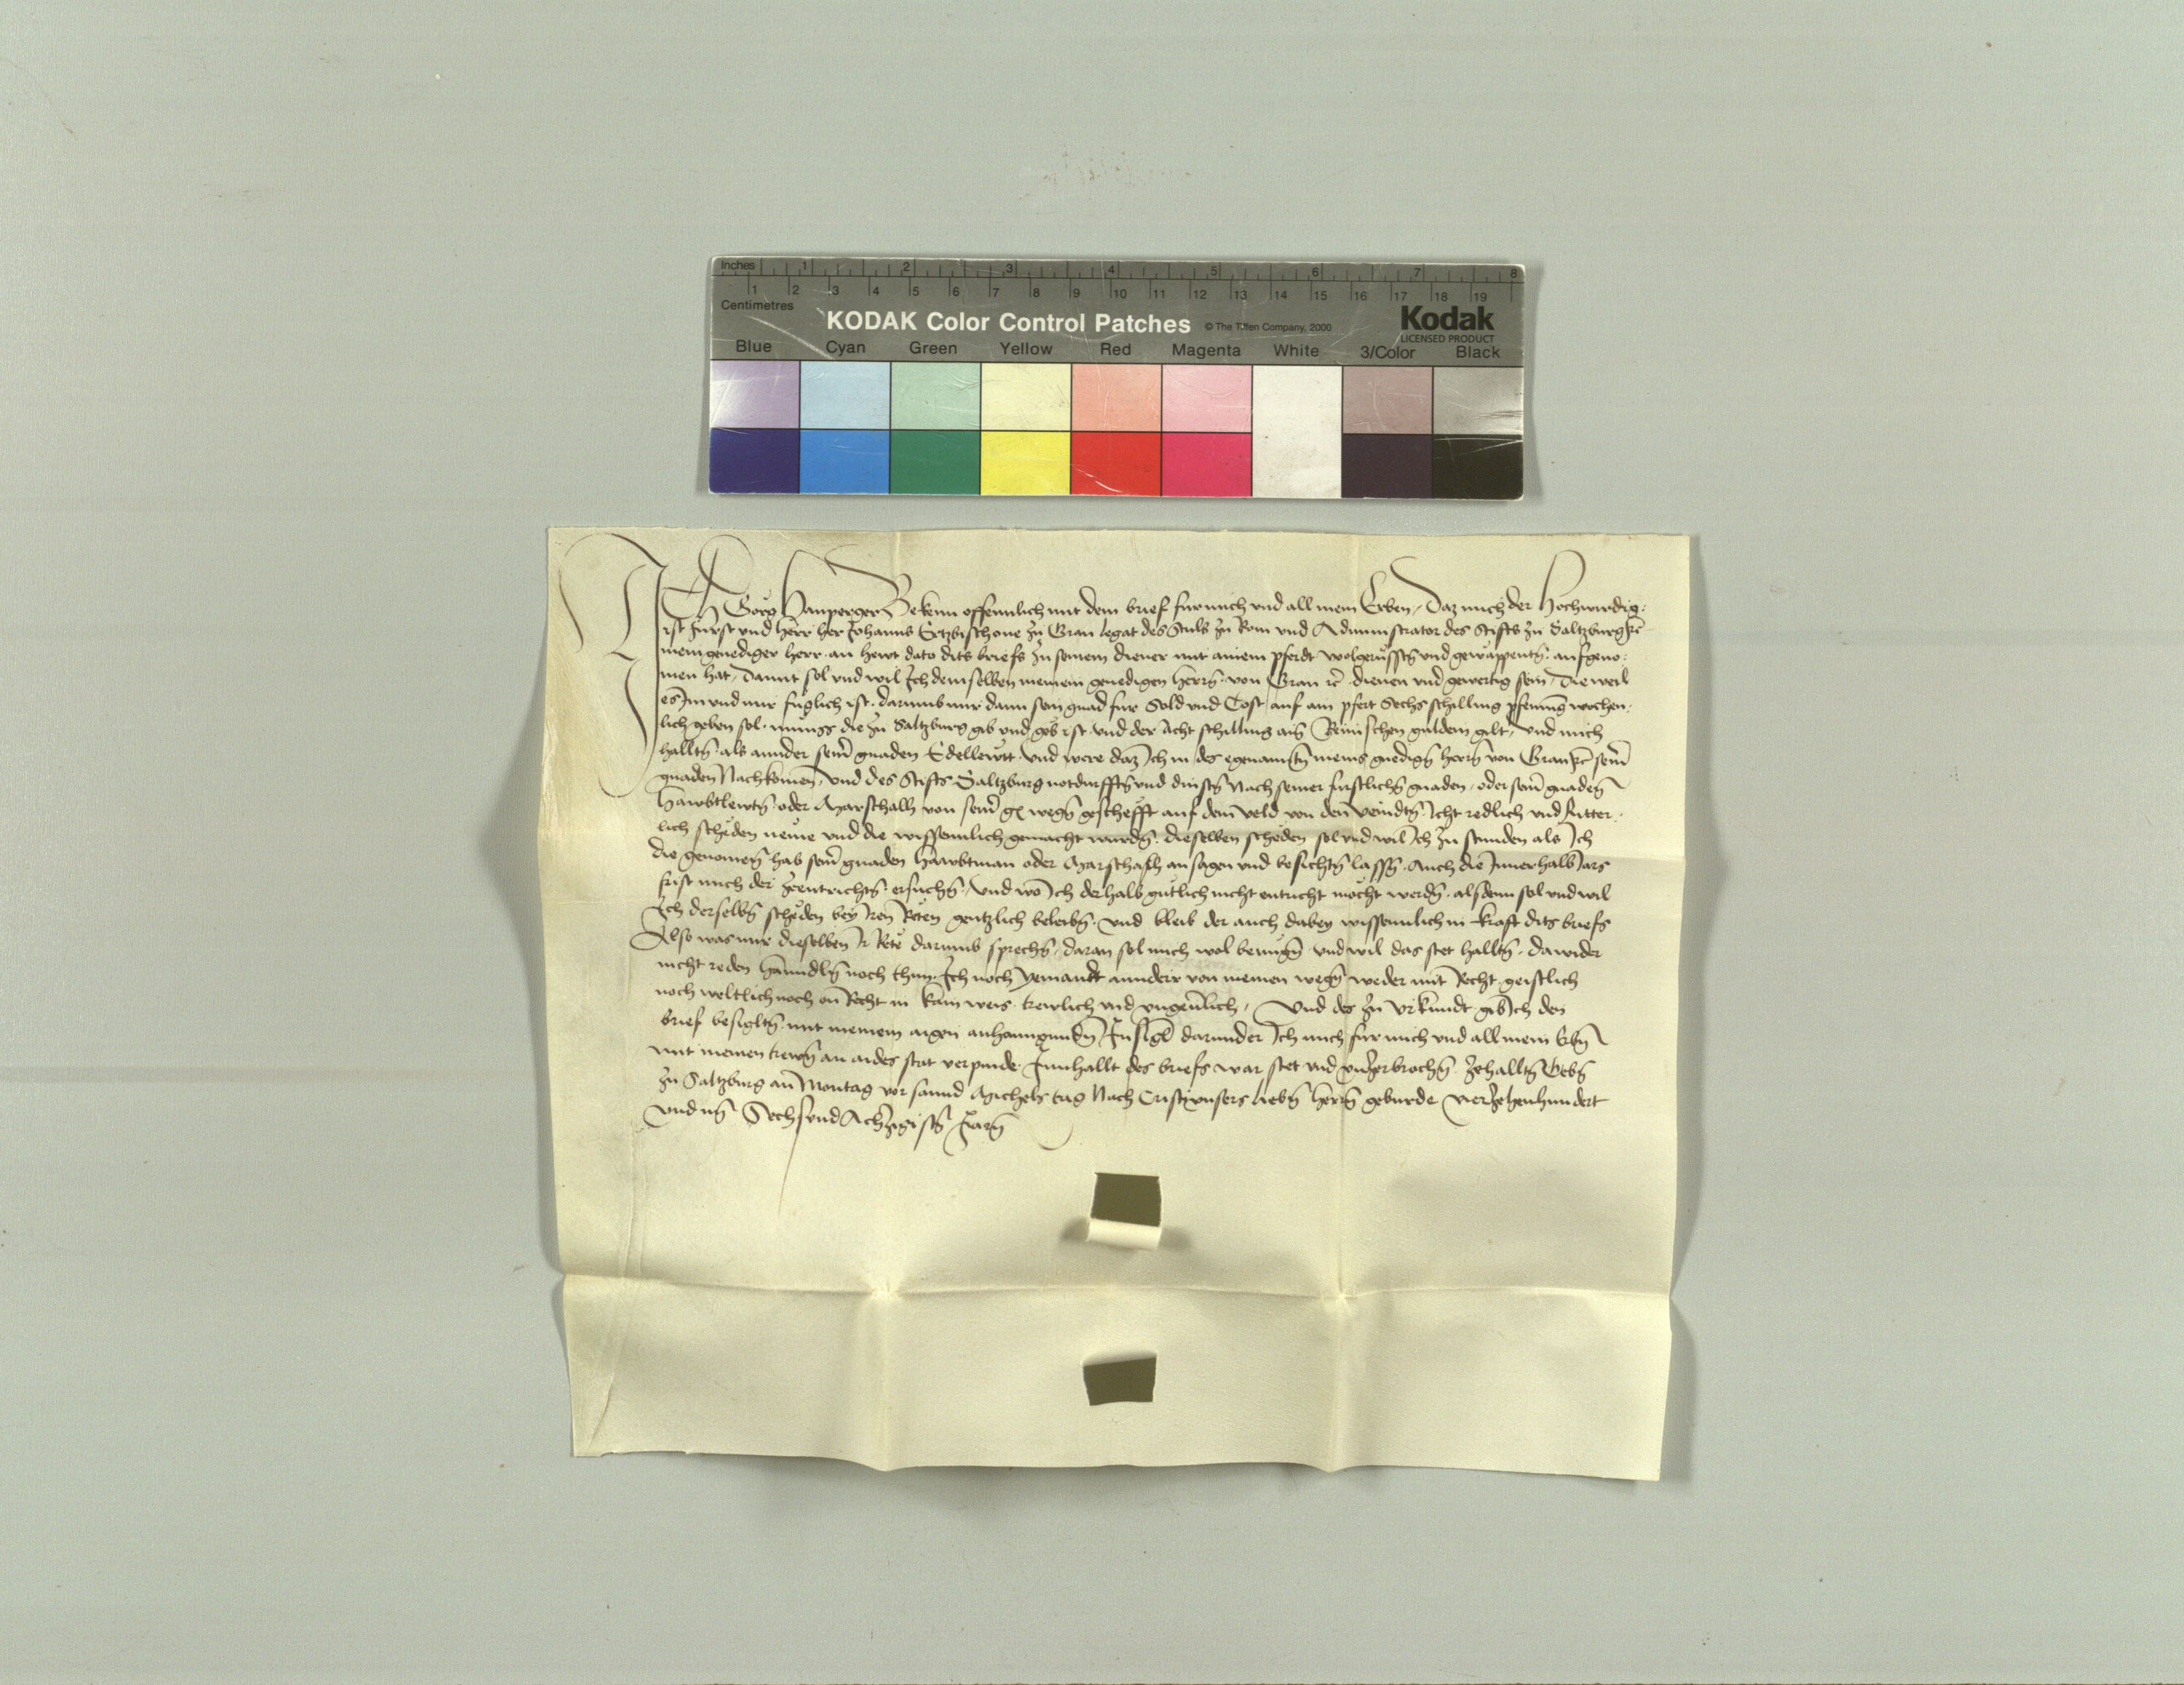 Inches 1 2 3 4 5 6 7 8
1 2 3 4 5 6 7 8 9 10 11 12 13 14 15 16 17 18 19
Centimetres
KODAK Color Control Patches © The Tiffen Company, 2000 Kodak
LICENSED PRODUCT
Blue Cyan Green Yellow Red Magenta White 3/Color Black
ICh Görg Hanperger Bekenn offennlich mit dem brief fur mich vnd all mein Erben, Daz mich der Hochwirdig:
ist Fürst vnd herr her Johanns Ertzbischoue zu Gran legat des Stuls zu Rom vnd Administrator des Stiffts zu Saltzburg ꝛc̄
mein genediger herr an hewt dato dits briefs zu seinem diener mit ainem pferdt wolgerüsstn̄ vnd gewappentn̄ aufgeno:
men hat, Damit sol vnd wil Ich demselben meinem genedigen herrn̄ von Gran ꝛc̄ dienen vnd gewertig sein, Dieweil
es Im vnd mir füglich ist. darumb mir dann sein gnad fur Sold vnd Cost auf ain pfert Sechs schilling pfenning wochen:
lich geben sol. münss die zu Saltzburg gib vnd geb ist vnd der Acht schilling ain̄ Reinischen guldein gilt, vnd mich
halltn̄ als annder sein̄ gnaden Edellewtt. Vnd were daz Ich in des egenantn̄ meins gnedign̄ herrn̄ von Gran ꝛc̄ sein̄
gnaden Nachkomen̄, vnd des Stiffts Saltzburg notdurfftn̄ vnd dinstn̄ Nach seiner furstlichn̄ gnaden, oder sein̄ gnaden̄
hawbtlewtn̄ oder Marschallh von sein̄ g wegn̄ geschefft auf dem veld von den veindtn̄ Icht redlich vnd Ritter:
lich scheden neme vnd die wissennlich gemacht wurdn̄. dieselben scheden sol vnd wil Ich zu stunden als Ich
die genomen̄ hab sein̄ gnaden hawbtman oder Marschalh ansagen vnd besichtn̄ lassn̄. Auch die Innerhalb Jars
frist mich der zeentrichtn̄ ersuchn̄, Vnd wo Ich derhalb gütlich nicht entricht möcht werdn̄. alsdenn sol vnd wil
Ich derselbn̄ scheden bey Iren Reten genntzlich beleibn̄. Vnd bleib der auch dabey wissennlich in kraft dits briefs
Also was mir dieselben Ir Rete darumb sprechn̄, daran sol mich wol benügn̄ vnd wil das stet halltn̄. dawider
nicht reden hanndln̄ noch thun. Ich noch yemandt annderr von meinen wegn̄ weder mit Recht geistlich
noch weltlich noch on Recht in kain weis. trewlich vnd vngeu̇erlich, Vnd des zu Vrkundt gib Ich den
brief besigltn̄ mit meinem aigen anhanngundn̄ Insigl darunder Ich mich fur mich vnd all mein Erbn̄
mit meinen trewn̄ an aides stat verpinde. Innhallt des briefs war stet vnd vnzerbrochn̄ zehalltn̄ Gebn̄
zu Saltzburg an Montag vor sannd Michels tag Nach Cristi vnsers liebn̄ herrn̄ geburde vierzehenhundert
vnd im Sechsvnd Achtzigistn̄ Jarn̄